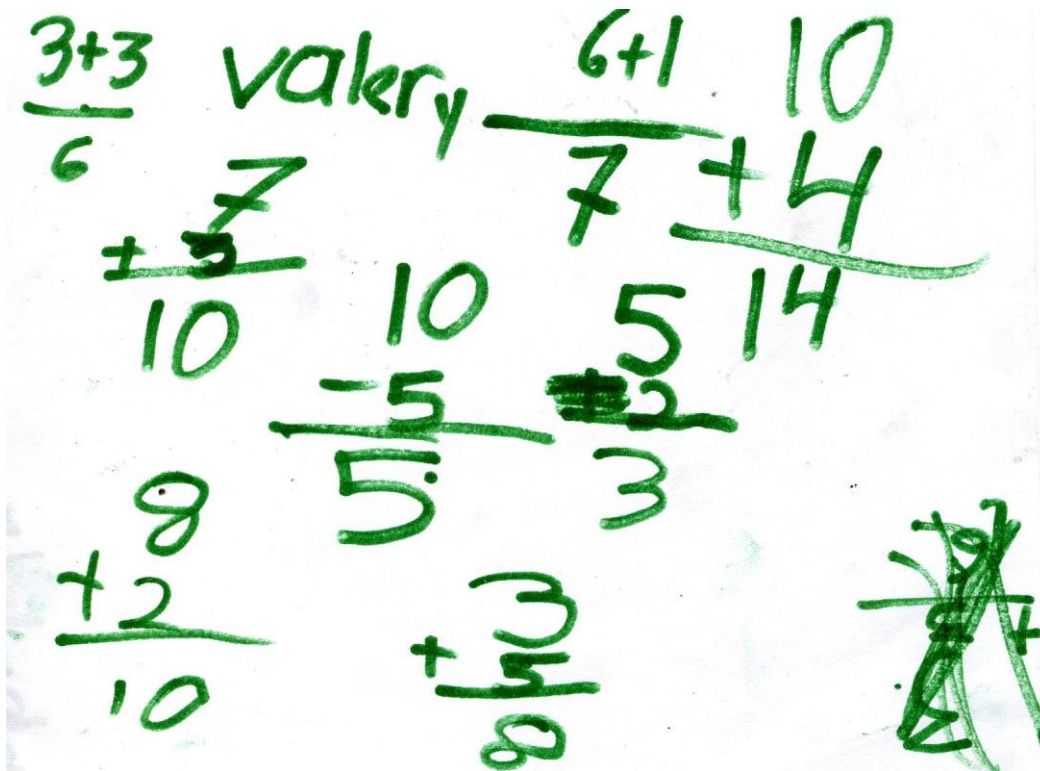 3+3
6
valery
6+1
7
10
+ 4
14
7
+ 3
10
10
- 5
5
5
2
3
8
+ 2
10
3
+ 5
8